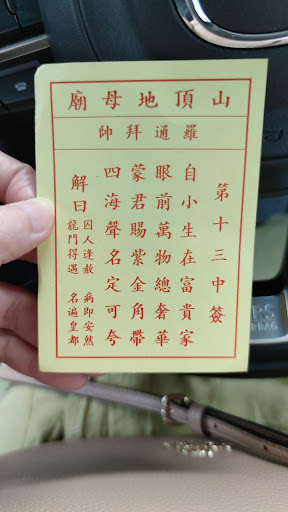 山頂地母廟
羅通拜帥
第十三中簽
自小生在富貴家
眼前萬物總奢華
蒙君賜紫金角帶
四海聲名定可夸
解曰
囚人逢赦 病即安然
龍門得遇 名遍皇都